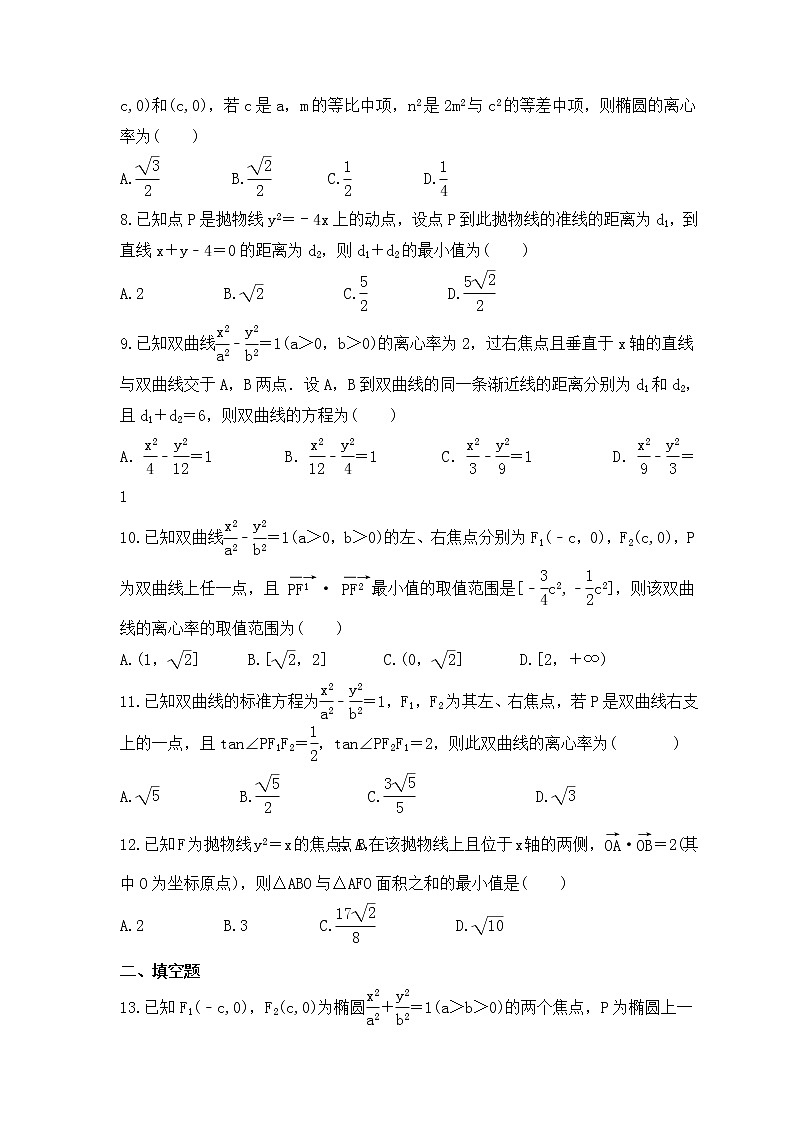 c,0)和(c,0)，若c是a，m的等比中项，n²是2m²与c²的等差中项，则椭圆的离心
率为(　　)
A.√3/2　　B.√2/2　　C.1/2　　D.1/4
8.已知点P是抛物线y²=﹣4x上的动点，设点P到此抛物线的准线的距离为d₁，到
直线x＋y﹣4=0的距离为d₂，则d₁＋d₂的最小值为(　　)
A.2　　B.√2　　C.5/2　　D.5√2/2
9.已知双曲线x²/a²﹣y²/b²=1(a＞0，b＞0)的离心率为2，过右焦点且垂直于x轴的直线
与双曲线交于A，B两点．设A，B到双曲线的同一条渐近线的距离分别为d₁和d₂，
且d₁＋d₂=6，则双曲线的方程为(　　)
A．x²/4﹣y²/12=1　　B．x²/12﹣y²/4=1　　C．x²/3﹣y²/9=1　　D．x²/9﹣y²/3=
1
10.已知双曲线x²/a²﹣y²/b²=1(a＞0，b＞0)的左、右焦点分别为F₁(﹣c，0)，F₂(c,0)，P
为双曲线上任一点，且 PF₁→· PF₂→最小值的取值范围是[﹣3/4c²,﹣1/2c²]，则该双曲
线的离心率的取值范围为(　　)
A.(1，√2]　　B.[√2，2]　　C.(0，√2]　　D.[2，＋∞)
11.已知双曲线的标准方程为x²/a²﹣y²/b²=1，F₁，F₂为其左、右焦点，若P是双曲线右支
上的一点，且tan∠PF₁F₂=1/2，tan∠PF₂F₁=2，则此双曲线的离心率为(　　)
A.√5　　B.√5/2　　C.3√5/5　　D.√3
12.已知F为抛物线y²=x的焦点，点在该抛物线上且位于x轴的两侧，OA→·OB→=2(其
中O为坐标原点)，则△ABO与△AFO面积之和的最小值是(　　)
A.2　　B.3　　C.17√2/8　　D.√10
二、填空题
13.已知F₁(﹣c,0)，F₂(c,0)为椭圆x²/a²＋y²/b²=1(a＞b＞0)的两个焦点，P为椭圆上一